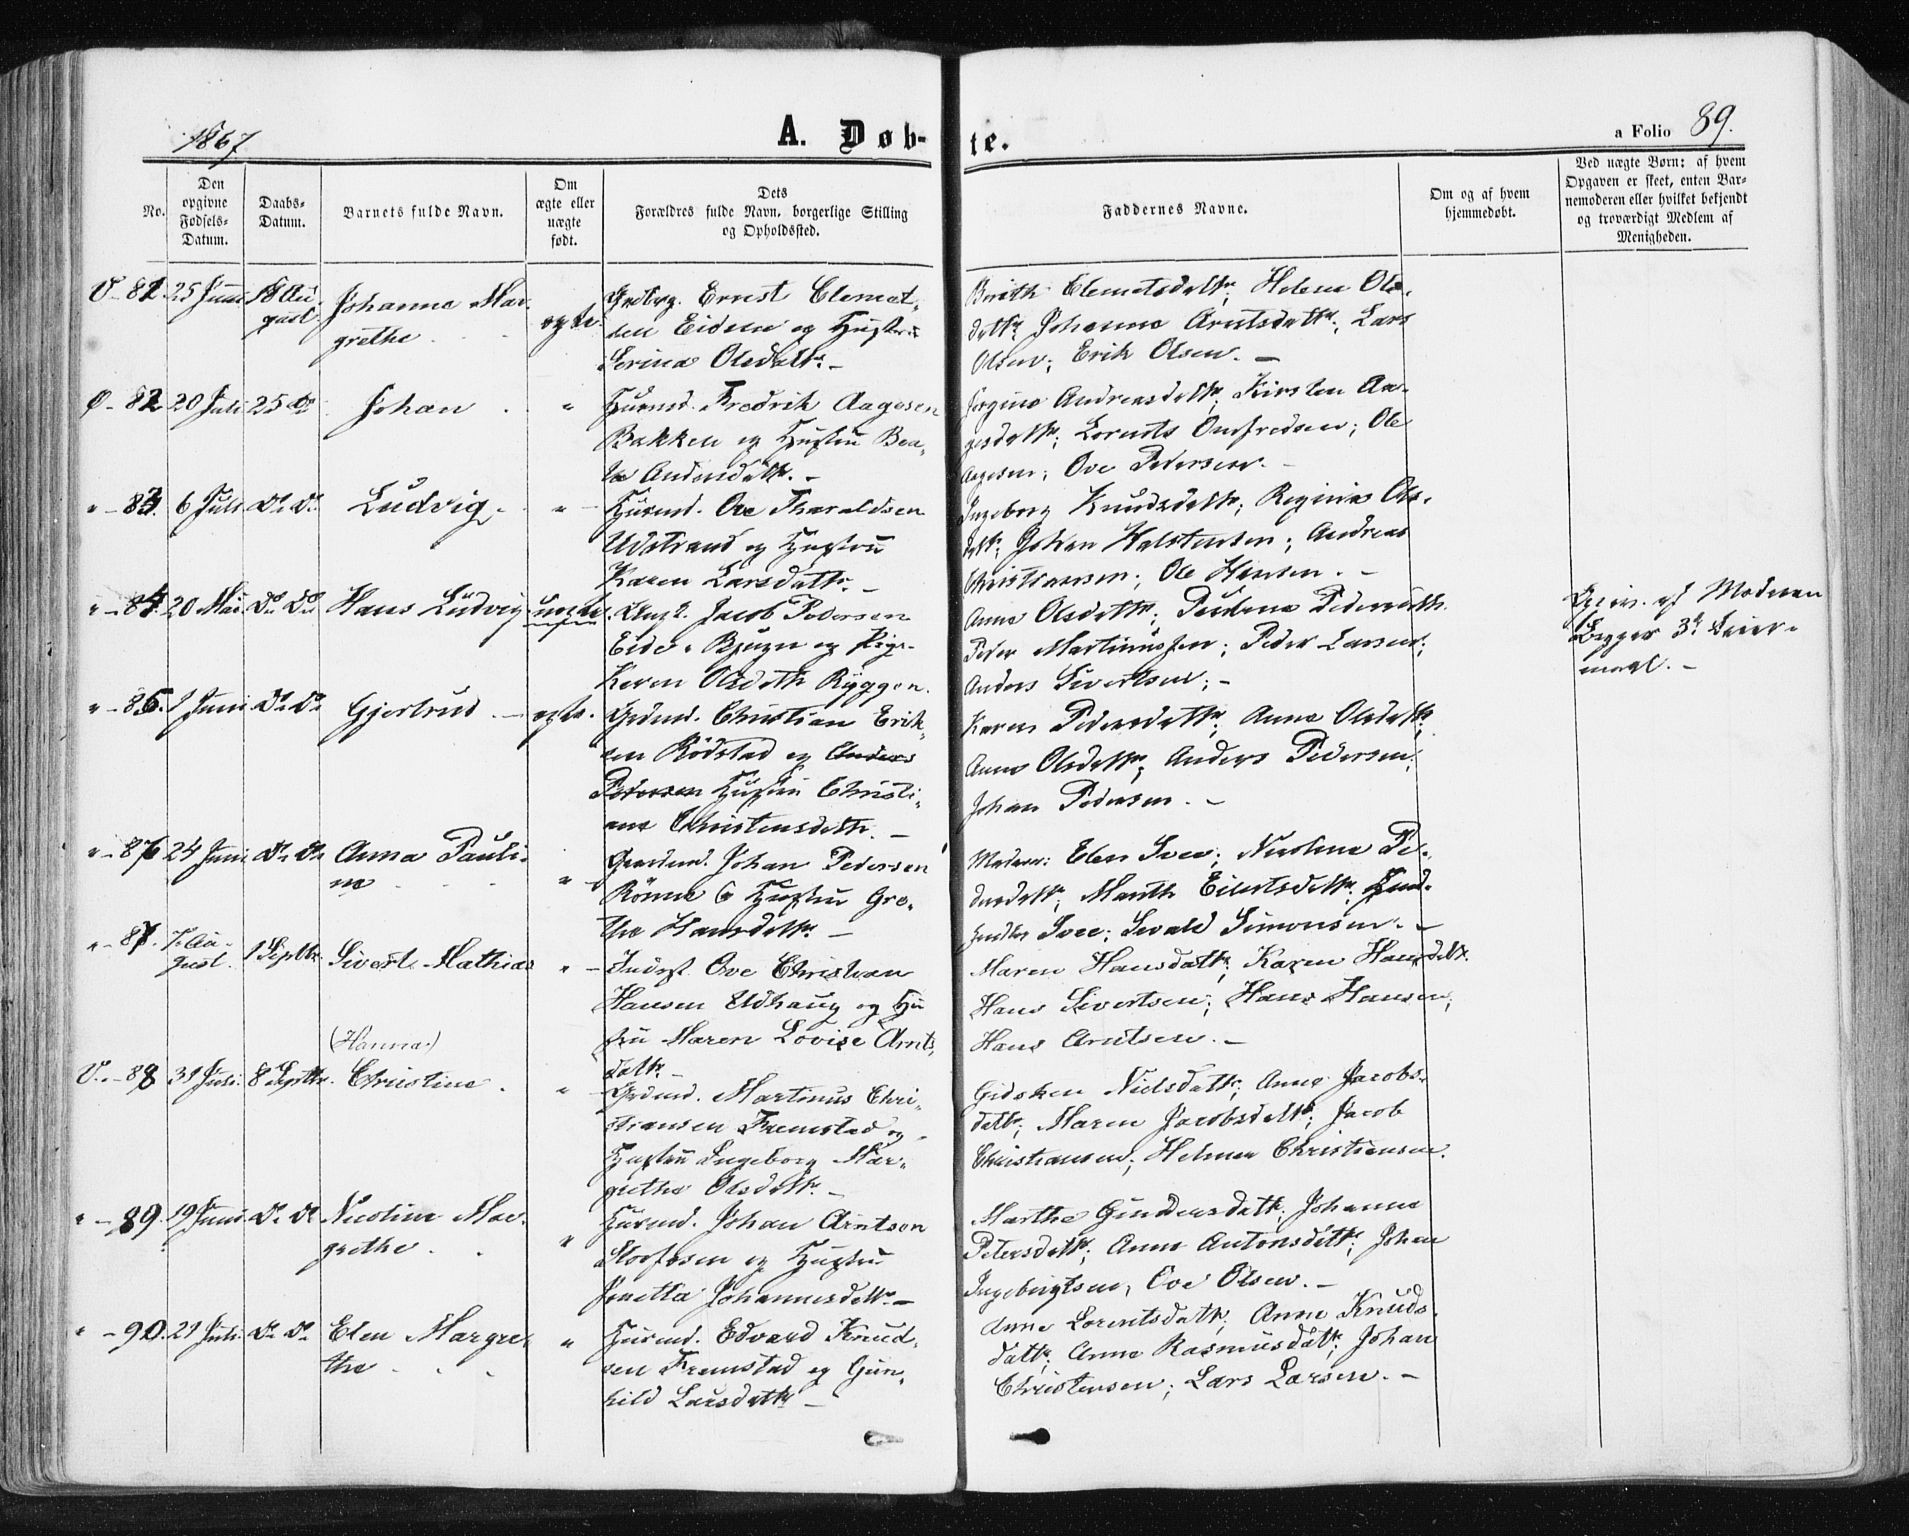 1867.
A. Døb-
te.
a Folio 89.
No.
Den
opgivne
Fødsels-
Datum.
Daabs-
Datum.
Barnets fulde Navn.
Om
ægte eller
uægte
født.
Dets
Forældres fulde Navn, borgerlige Stilling
og Opholdssted.
Faddernes Navne.
Om og af hvem
hjemmedøbt.
Ved uægte Børn: af hvem
Opgaven er skeet, enten Bar-
nemoderen eller hvilket bekjendt
og troværdigt Medlem af
Menigheden.
V- 81. 25 Juni 18 Au-
gust. Johanna Mar-
grethe
ægte.
Ernst Clemet-
sen Eidem og Hustru
Serina Olsdatr. -
Berith Clemetsdatr; Helena Ols-
datr; Johanna Arntsdatr; Lars
Olsen; Erik Olsen. -
Ø- 82 20 Juli 25 do Johan
" Huusmd. Fredrik Aagesen
Bakken og Hustru Bea-
te Andersdatr. -
Andreasdatr; Kirsten Aa-
gesdatr; Lorents Omfredsen; Ole
Aagesen; Ove Pedersen. -
" - 83. 6 Juli do do Ludvig.
" Huusmd. Ove Tharaldsen
Udstrand og Hustru
Karen Larsdatr. -
Ingeborg Knudsdatr; Regine Ols-
datr; Johan Halstensen; Andreas
Christiansen; Ole Hansen. -
" - 84. 20 Mai. do do Hans Ludvig uægte
Ungk. Jacob Pedersen
Eide, Bjugn og Pige
Karen Olsdatr Ryggen.
Anna Olsdatr; Pedersdtr.
Peder Martinussen; Peder Larsen;
Anders Sivertsen; -
af Moderen
Begges 3d Leier-
maal. -
" - 85. 1 Juni do do Gjertrud. - ægte.
Grdmd. Christian Erik-
sen Rödstad og Anders
Pedersen Hustru Christi-
ane Christensdatr. -
Karen Pedersdatr; Anna Olsdatr;
Anne Olsdatr; Anders Pedersen;
Johan Pedersen. -
" - 86 24 Juni do do Anna Pauli-
ne
" Gaardmd. Johan Pedersen
Rönne & Hustru Gre-
the Hansdatr. -
Madam: Elen Svee; Nicoline Pe-
dersdatr; Marith Eilertsdatr;
Svee; Sivald Simonsen. -
" - 87. 7. Au-
gust. 1 Septbr. Sivert Mathias
" Inderst Ove Christian
Hansen Udhaug og Hu-
stru Maren Lovise Arnts-
datr. -
Maren Hansdatr; Karen Hansdatr.
Hans Sivertsen; Hans Hansen;
Hans Arntsen. -
(Hanna)
V. - 88 31 Juli. 8 Septbr. Christine
" Grdmd. Martinus Chri-
stiansen Fremstad og
Hustru Ingeborg Mar-
grethe Olsdatr. -
Gidsken Nielsdatr; Anne Jacobs-
datr; Maren Jacobsdatr; Jacob
Christiansen; Helmer Christiansen.
" - 89. 19 Juni do do Nicoline Mar-
grethe
" Huusmd. Johan Arntsen
Storfosen og Hustru
Jonetta Johannesdatr. -
Marthe Gundersdatr; Johanna
Petersdatr; Anna Antonsdatr; Johan
Ingebrigtsen; Ove Olsen. -
" - 90. 21 Juli. do do Elen Margre-
the
" Huusmd. Edvard Knud-
sen Fremstad og Gun-
hild Larsdatr -
Anne Lorentsdatr; Anne Knuds-
datr; Anne Rasmusdatr; Johan
Christensen; Lars Larsen. -